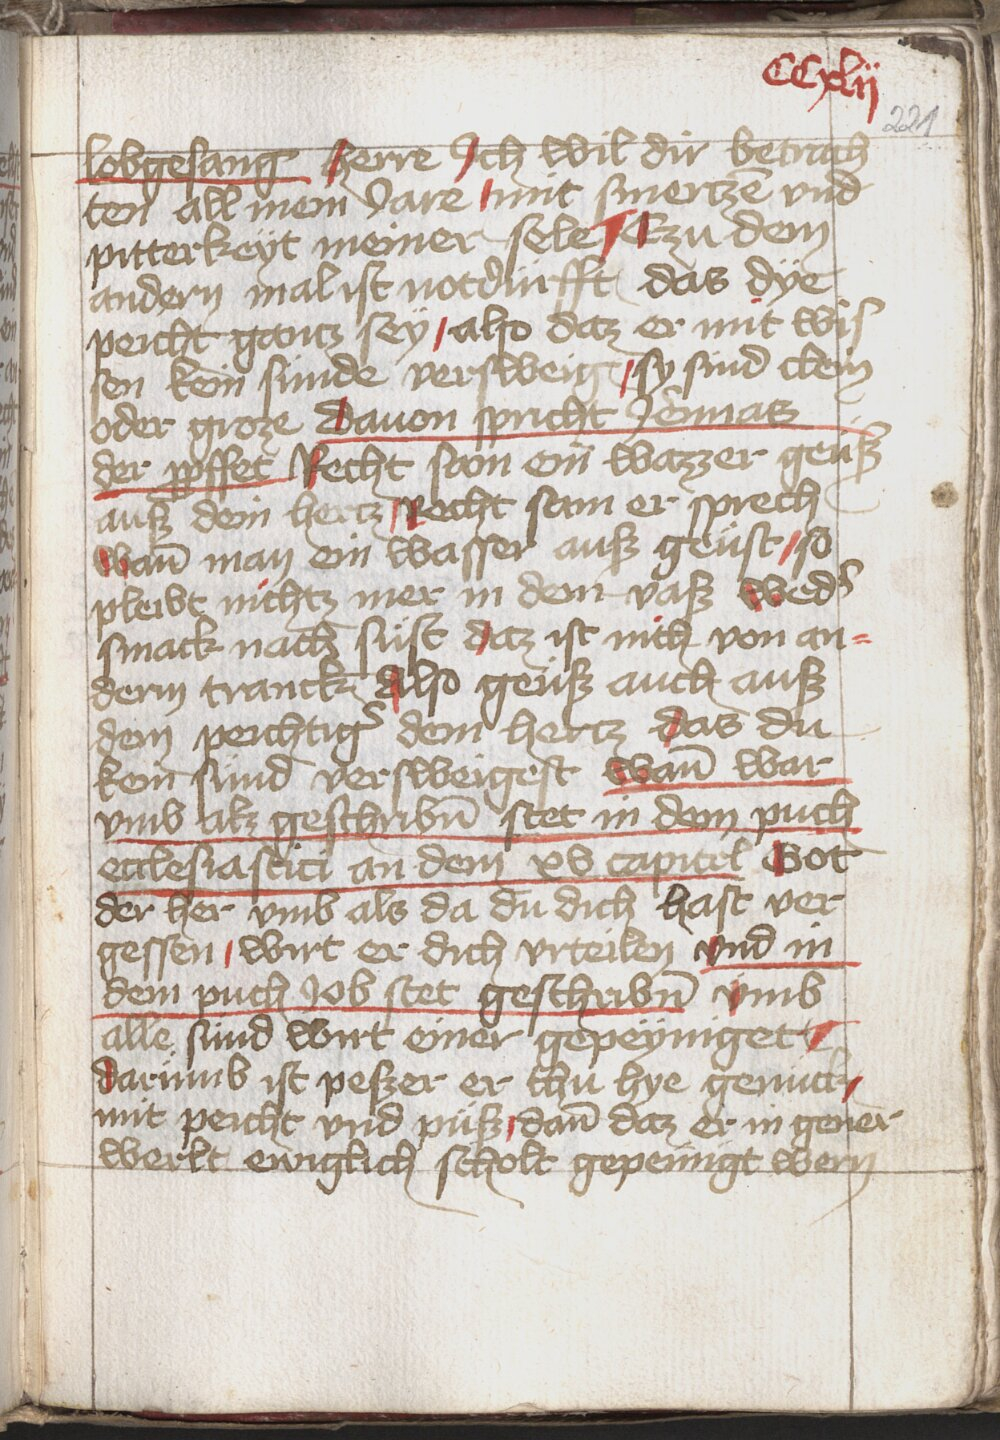 CCxlij
221
lobgesang herre Ich wil dir betrach
ten all mein Jare mit smertzē vnd
pitterkeyt meiner sele Czu dem
andern mal ist notdürfft das dÿe
peicht gantz seÿ / also daz er mit wis
sen kein sünde versweig / sy sind clein
oder groze Dauon spricht Jeremias
der ꝓffet Recht sam ein wazzer geuß
auß dein hertz Recht sam er sprech
wan̄ man ein wasser auß geüst / so
pleibt nichtz mer in dem vaß wed̓
smack nach süst daz ist nith von an=
derm tranck Also geuß auch auß
dein peichtig̓ dein hertz das du
kein sünd versweigest wan̄ war
vmb alz geschribn̄ stet in dem puch
ecclesiastici an dem xv capitel Got
der her vmb als da du dich hast ver
gessen / wirt er dich vrteilen vnd in
dem puch Job stet geschribn̄ vmb
alle sünd wirt einer gepeÿniget
Darümb ist peßer er thu hye genuck /
mit peicht vnd püß / dan̄ daz er in gener
werlt ewiglich scholt gepeinigt wern